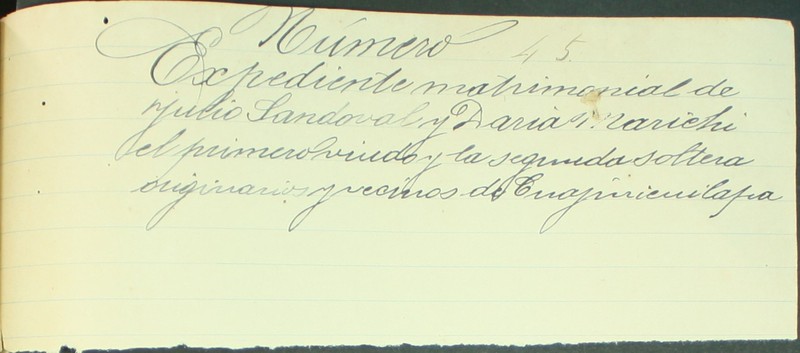 Número 45.
Expediente matrimonial de
Julio Sandoval y Daria Marichi
el primero viudo y la segunda soltera
originarios y vecinos de Cuajinicuilapa